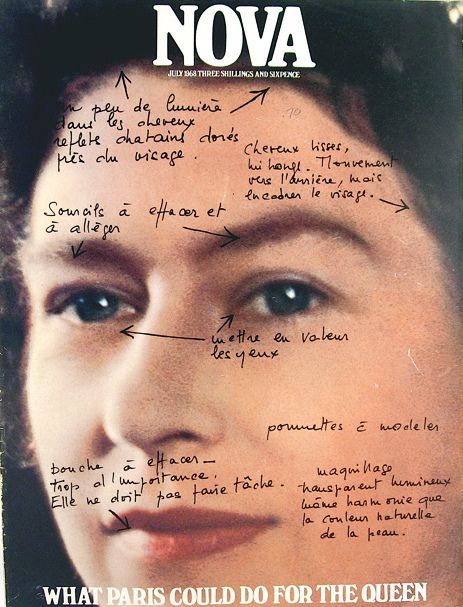 NOVA
JULY 1968 THREE SHILLINGS AND SIXPENCE
un peu de lumière
dans les cheveux
reflets chatains dorés
près du visage.
Cheveux lisses,
mi longs. Mouvement
vers l'arrière, mais
encadrer le visage.
Sourcils à effacer et
à alléger
mettre en valeur
les yeux
pommettes à modeler
bouche à effacer_
Trop d'importance.
Elle ne doit pas faire tâche.
maquillage
transparent lumineux
même harmonie que
la couleur naturelle
de la peau.
WHAT PARIS COULD DO FOR THE QUEEN